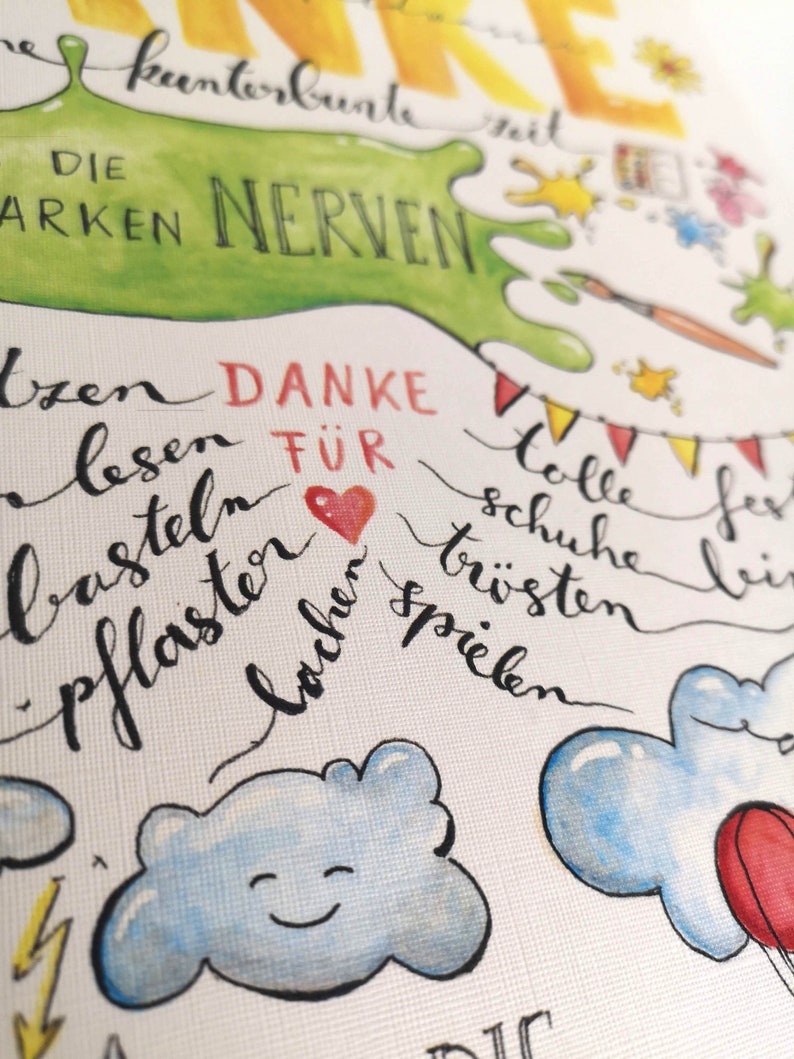 NKE
ne kunterbunte zeit
DIE
ARKEN NERVEN
tzen DANKE
lesen FÜR
basteln
pflaster
lachen
spielen
trösten
schuhe bin
tolle fes
DIE